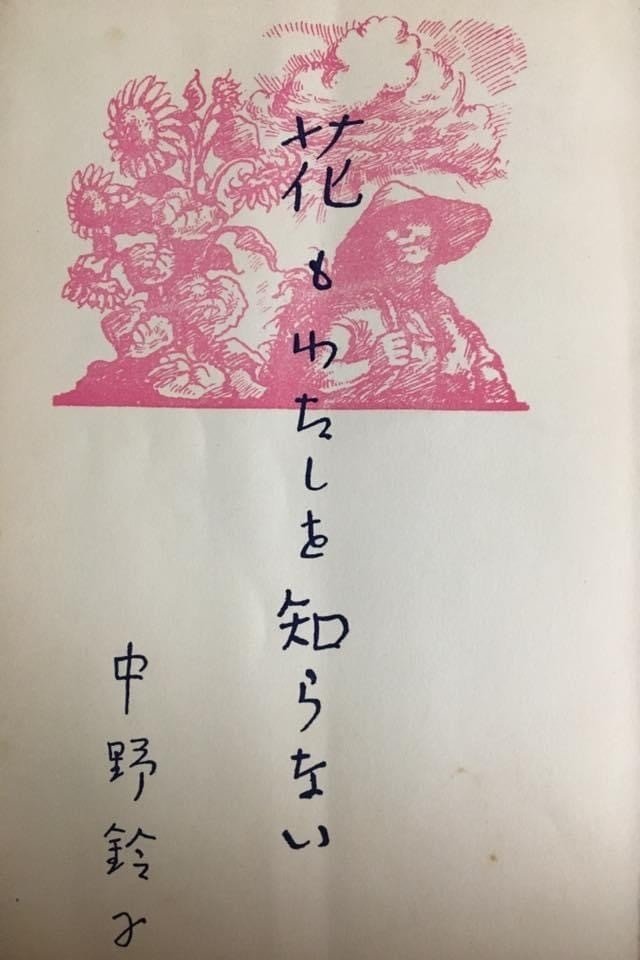 花もわたしを知らない
中野鈴子